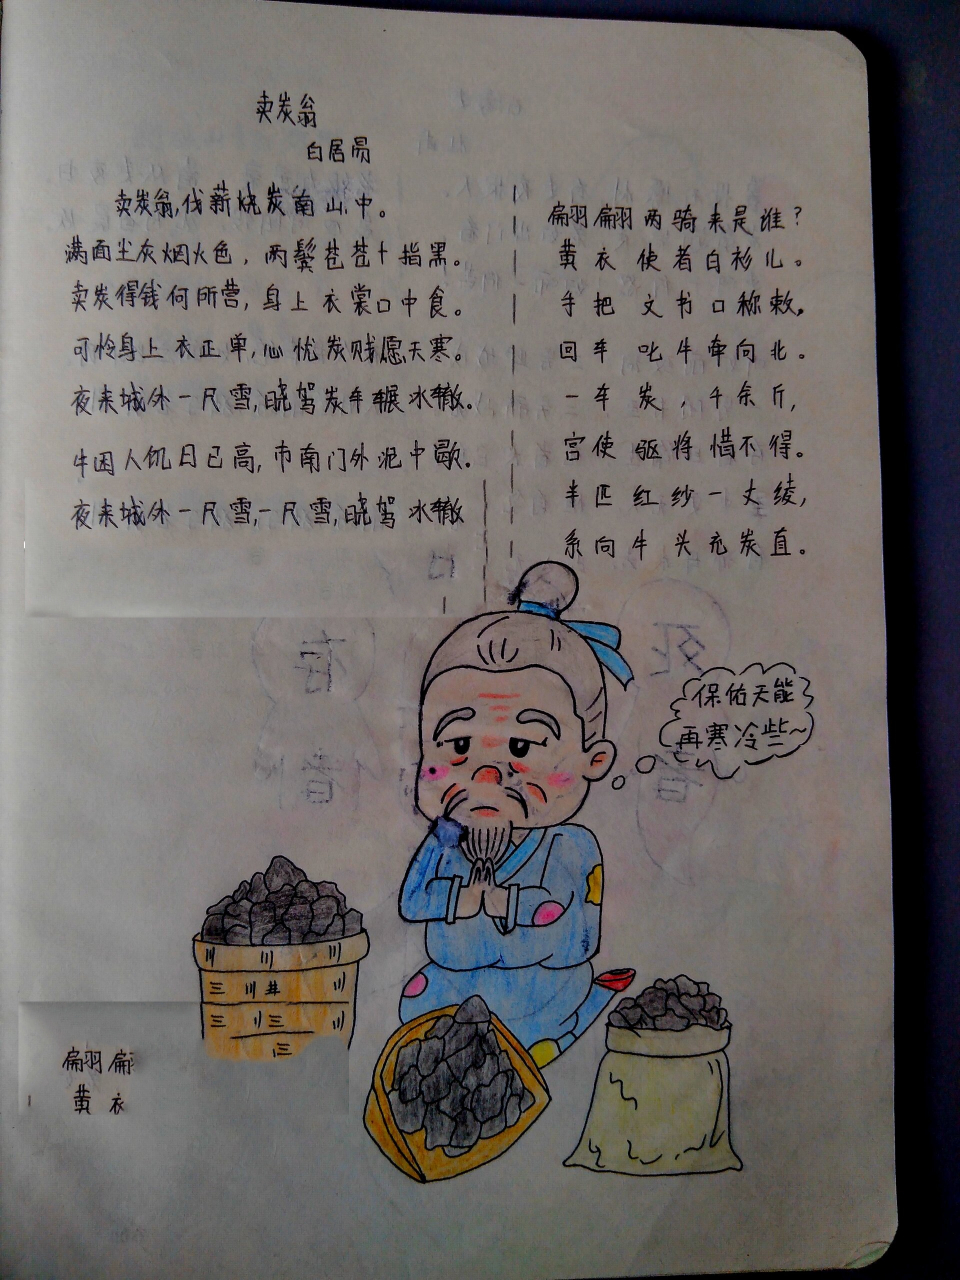 卖炭翁
白居易
卖炭翁,伐薪烧炭南山中。
满面尘灰烟火色，两鬓苍苍十指黑。
卖炭得钱何所营，身上衣裳口中食。
可怜身上衣正单，心忧炭贱愿天寒。
夜来城外一尺雪，晓驾炭车辗冰辙。
牛困人饥日已高，市南门外泥中歇。
夜来城外一尺雪，一尺雪，晓驾冰辙
翩翩两骑来是谁？
黄衣使者白衫儿。
手把文书口称敕，
回车叱牛牵向北。
一车炭，千余斤，
宫使驱将惜不得。
半匹红纱一丈绫，
系向牛头充炭直。
保佑天能
再寒冷些~
翩翩
黄衣